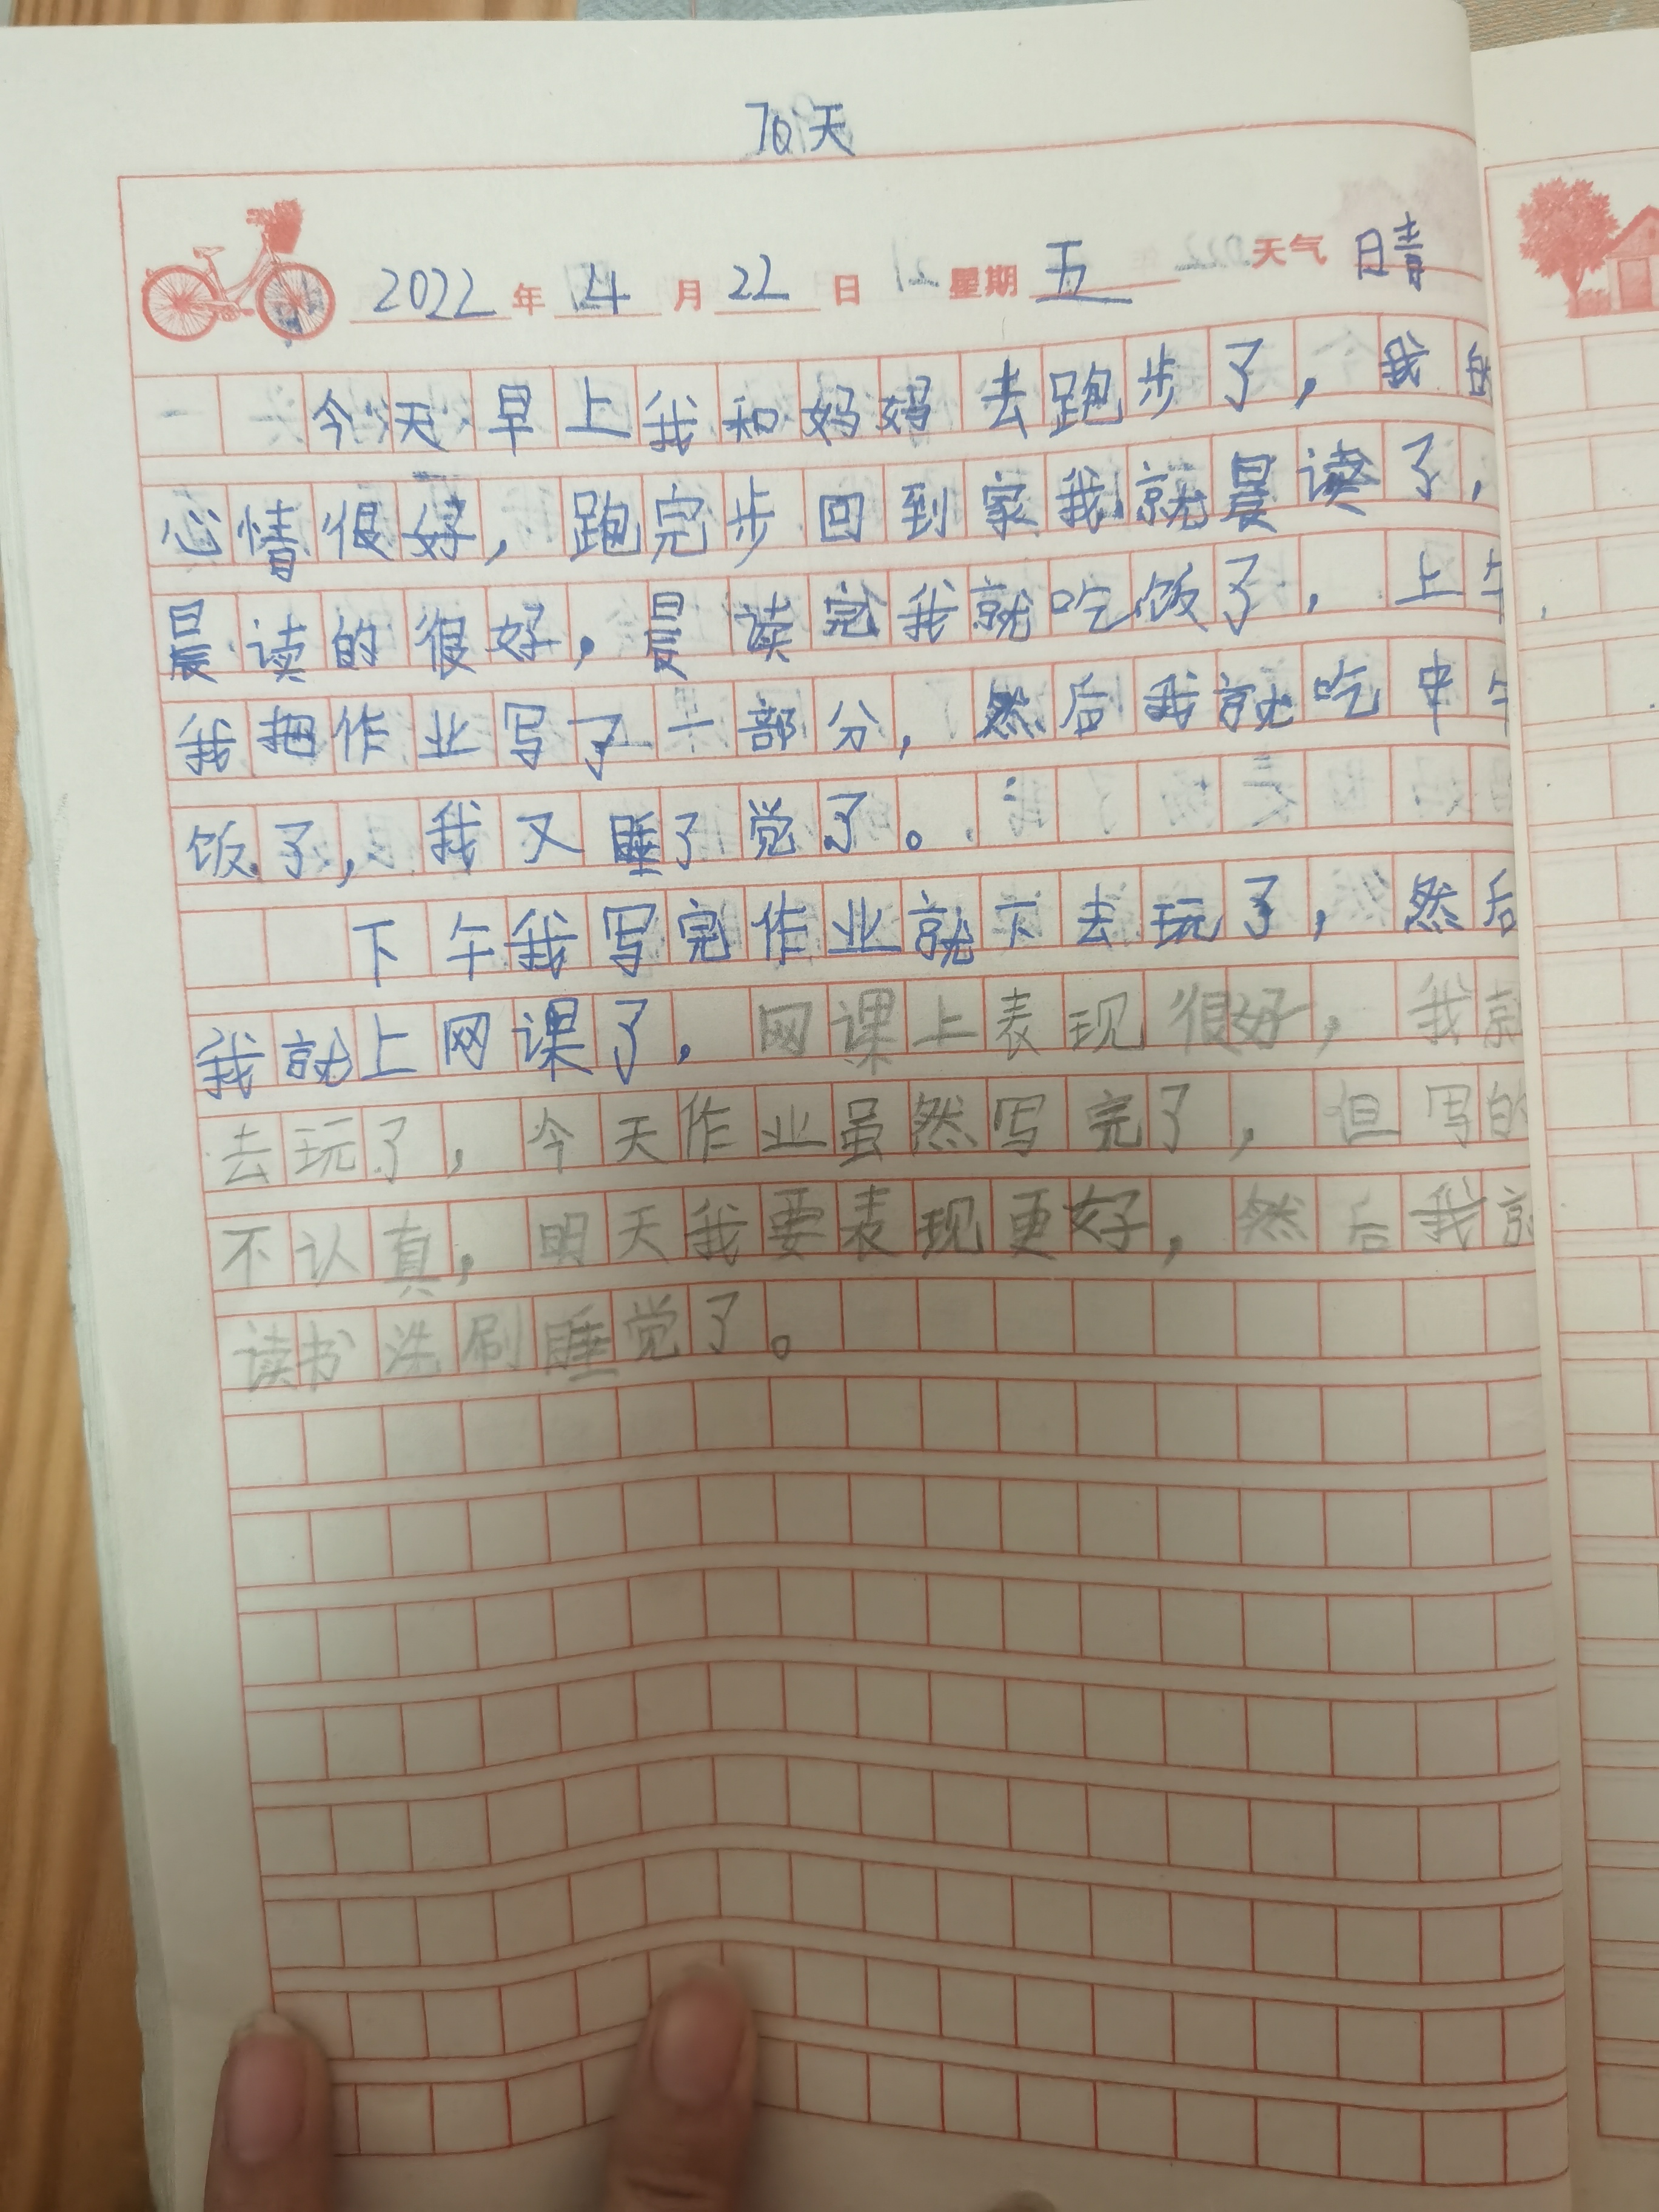 70天
2022年4月22日 星期五 天气 晴
今天早上我和妈妈去跑步了，我的
心情很好，跑完步回到家我就晨读了，
晨读的很好，晨读完我就吃饭了，上午
我把作业写了一部分，然后我就吃中午
饭了，我又睡了觉了。
下午我写完作业就下去玩了，然后
我就上网课了，网课上表现很好，我就
去玩了，今天作业虽然写完了，但写的
不认真，明天我要表现更好，然后我就
读书洗刷睡觉了。